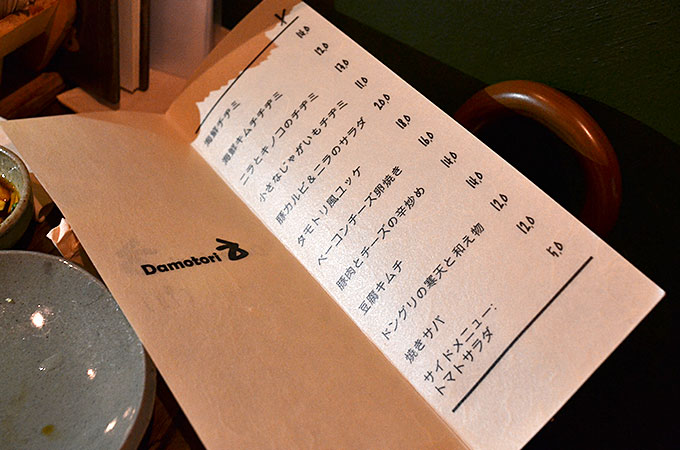 海鮮チヂミ 14.0
海鮮キムチチヂミ 12.0
ニラとキノコのチヂミ 13.0
小さなじゃがいもチヂミ 11.0
豚カルビ&ニラのサラダ 20.0
タモトリ風ユッケ 18.0
ベーコンチーズ卵焼き 16.0
豚肉とチーズの辛炒め 14.0
豆腐キムチ 14.0
ドングリの寒天と和え物 12.0
焼きサバ 12.0
サイドメニュー:
トマトサラダ 5.0
Damotori